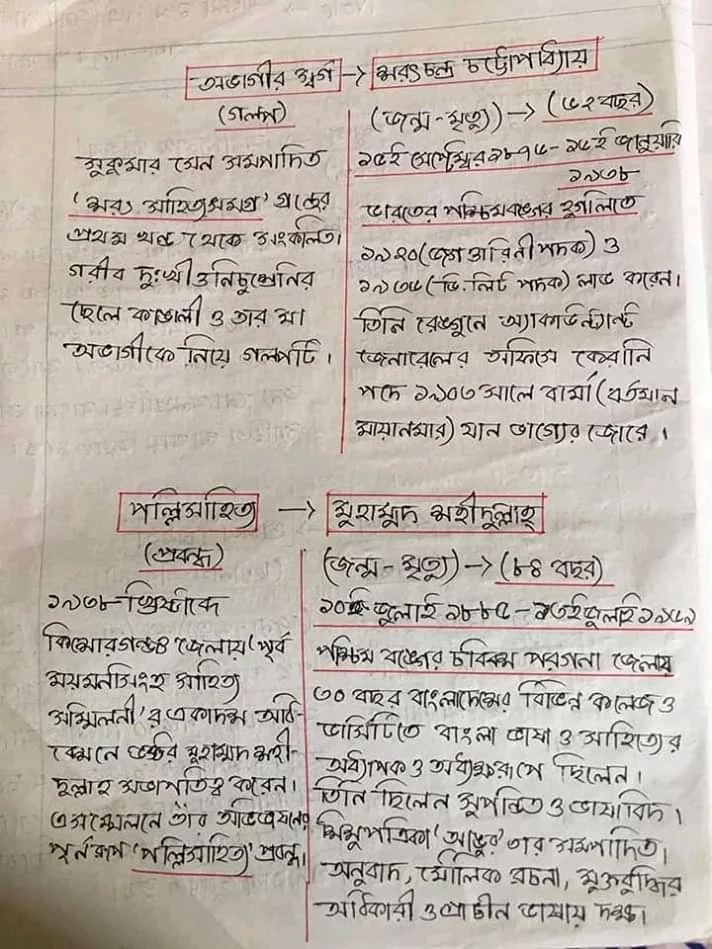 অভাগীর স্বর্গ → শরৎচন্দ্র চট্টোপাধ্যায়
(গল্প)
সুকুমার সেন সম্পাদিত
'শরৎ সাহিত্যসমগ্র' গ্রন্থের
প্রথম খন্ড থেকে সংকলিত।
গরীব দুঃখী ও নিচুশ্রেনির
ছেলে কাঙালী ও তার মা
অভাগীকে নিয়ে গল্পটি।
(জন্ম - মৃত্যু) → (৬২ বছর)
১৫ই সেপ্টেম্বর ১৮৭৬ - ১৬ই জানুয়ারি
১৯৩৮
ভারতের পশ্চিমবঙ্গের হুগলিতে
১৯২০ (জগত্তারিনী পদক) ও
১৯৩৬ (ডি.লিট পদক) লাভ করেন।
তিনি রেঙ্গুনে অ্যাকাউন্ট্যান্ট
জেনারেলের অফিসে কেরানি
পদে ১৯০৩ সালে বার্মা (বর্তমান
মায়ানমার) যান ভাগ্যের জোরে।
পল্লিসাহিত্য → মুহাম্মদ শহীদুল্লাহ্
(প্রবন্ধ)
১৯৩৮ খ্রিষ্টাব্দে
কিশোরগঞ্জ জেলায় 'পূর্ব
ময়মনসিংহ সাহিত্য
সম্মিলনী'র একাদশ অধি-
বেশনে ডক্টর মুহাম্মদ শহী-
দুল্লাহ সভাপতিত্ব করেন।
এ সম্মেলনে তাঁর অভিভাষনের
পূর্নরূপ 'পল্লিসাহিত্য' প্রবন্ধ।
(জন্ম - মৃত্যু) → (৮৪ বছর)
১০ই জুলাই ১৮৮৫ - ১৩ই জুলাই ১৯৬৯
পশ্চিম বঙ্গের চব্বিশ পরগনা জেলায়
৩০ বছর বাংলাদেশের বিভিন্ন কলেজ ও
ভার্সিটিতে বাংলা ভাষা ও সাহিত্যের
অধ্যাপক ও অধ্যক্ষরূপে ছিলেন।
তিনি ছিলেন সুপন্ডিত ও ভাষাবিদ।
শিশুপত্রিকা 'আঙুর' তার সম্পাদিত।
অনুবাদ, মৌলিক রচনা, মুক্তবুদ্ধির
অধিকারী ও প্রাচীন ভাষায় দক্ষ।